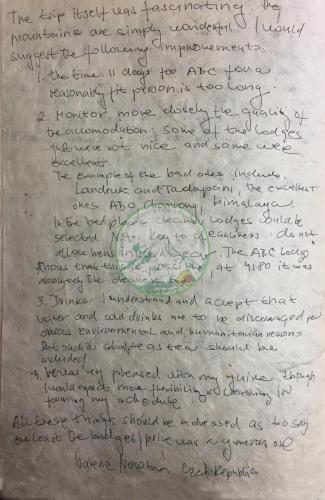 The trip itself was fascinating. The
mountains are simply wonderful. I would
suggest the following improvements:
1. the time 11 days for ABC for a
reasonably fit person is too long.
2. Monitor more closely the quality of
the accomodation: some of the lodges
just were not nice and some were
excellent.
The example of the bad ones include
Landruk and Tadapani, the excellent
ones ABC, Himalaya.
In the bad places cleaner lodges should be
selected. Note: Key to cleanliness: do not
allow mens in. The ABC lodge
shows that this is possible, at 4180 it was
absolutely the cleanest one.
3. Drinks: I understand and accept that
water and cold drinks are to be discouraged for
obvious environmental and humanitarian reasons
but such a staple as tea should be
included
4. Was very pleased with my guide though
I would expect more flexibility in
forming my schedule
All these things should be addressed as to say
the least the budget/price was a generous one
Valerie Czech Republic